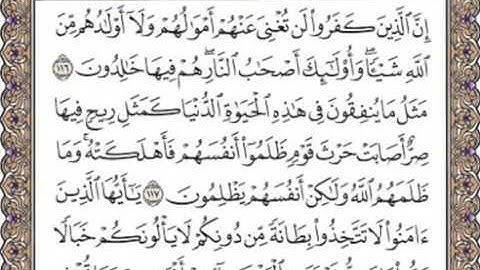 إِنَّ الَّذِينَ كَفَرُوا۟ لَن تُغْنِىَ عَنْهُمْ أَمْوَٰلُهُمْ وَلَآ أَوْلَٰدُهُم مِّنَ
اللَّهِ شَيْـًٔا ۖ وَأُو۟لَٰٓئِكَ أَصْحَٰبُ النَّارِ ۚ هُمْ فِيهَا خَٰلِدُونَ ١١٦
مَثَلُ مَا يُنفِقُونَ فِى هَٰذِهِ الْحَيَوٰةِ الدُّنْيَا كَمَثَلِ رِيحٍ فِيهَا
صِرٌّ أَصَابَتْ حَرْثَ قَوْمٍ ظَلَمُوٓا۟ أَنفُسَهُمْ فَأَهْلَكَتْهُ ۚ وَمَا
ظَلَمَهُمُ اللَّهُ وَلَٰكِنْ أَنفُسَهُمْ يَظْلِمُونَ ١١٧ يَٰٓأَيُّهَا الَّذِينَ
ءَامَنُوا۟ لَا تَتَّخِذُوا۟ بِطَانَةً مِّن دُونِكُمْ لَا يَأْلُونَكُمْ خَبَالًا